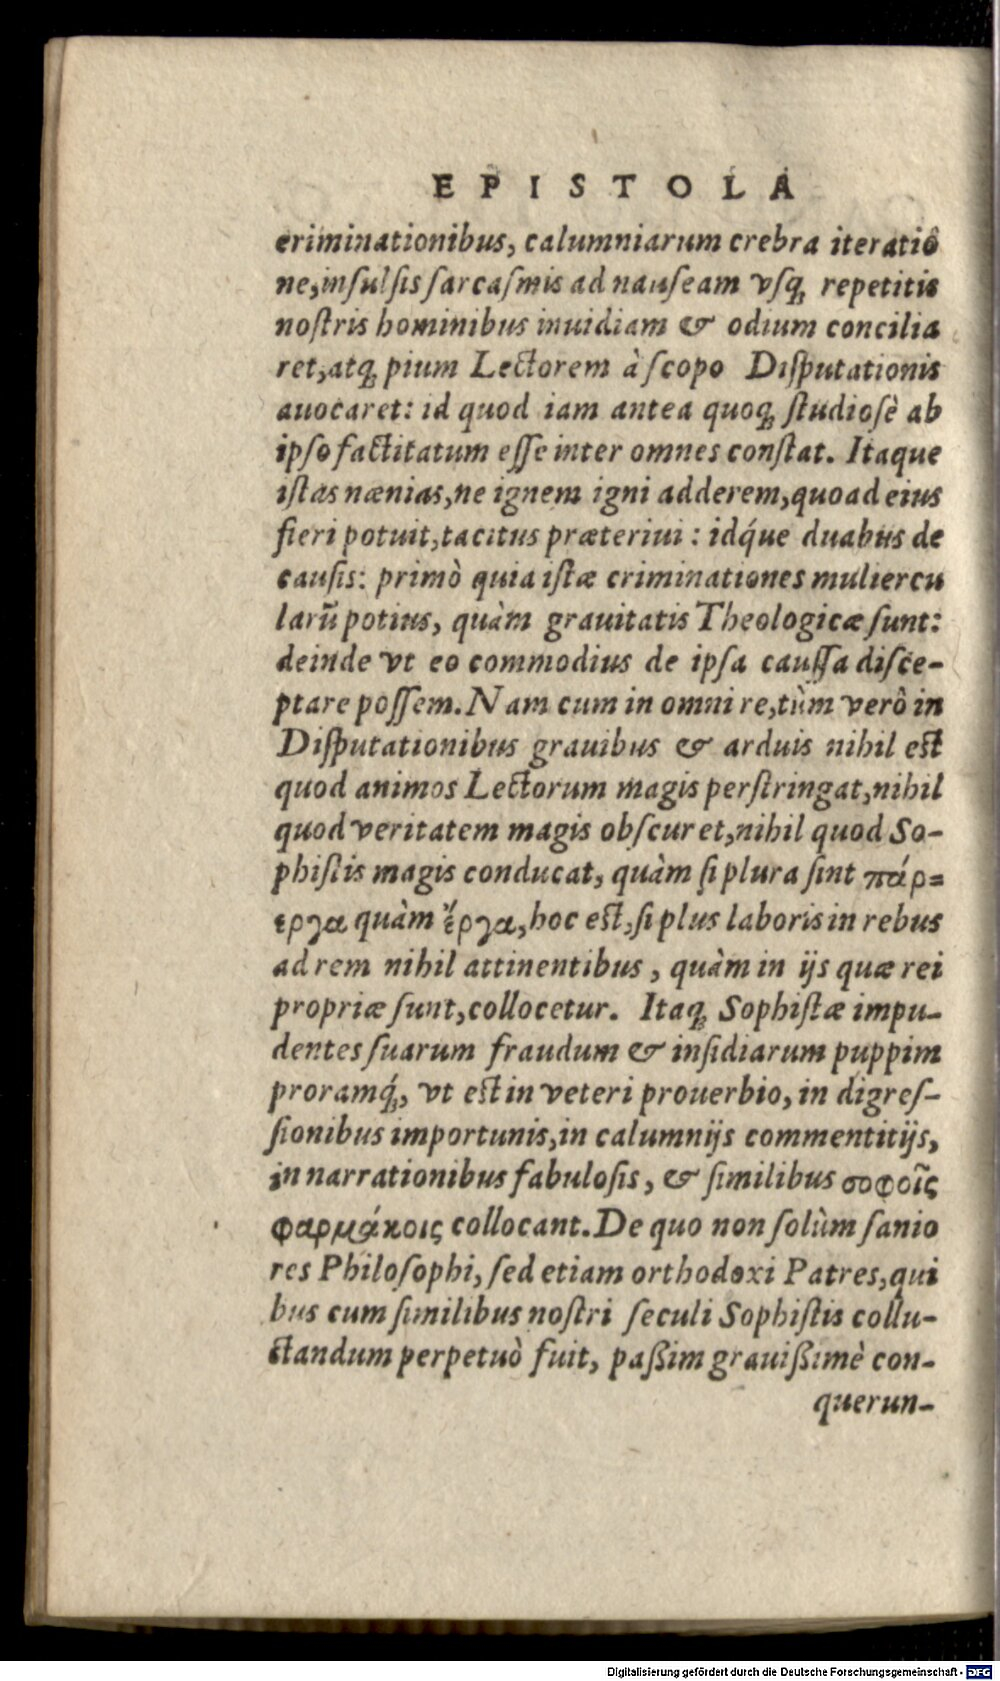 EPISTOLA
criminationibus, calumniarum crebra iteratiô
ne, insulsis sarcasmis ad nauseam vsq́ꝫ repetitis
nostris hominibus inuidiam & odium concilia
ret, atqꝫ pium Lectorem à scopo Disputationis
auocaret: id quod iam antea quoqꝫ studiosè ab
ipso factitatum esse inter omnes constat. Itaque
istas nænias, ne ignem igni adderem, quoad eius
fieri potuit, tacitus præteriui: idq́ue duabus de
causis: primò quia istæ criminationes muliercu
larũ potius, quàm grauitatis Theologicæ sunt:
deinde vt eo commodius de ipsa caussa disce-
ptare possem. Nam cum in omni re, tùm verô in
Disputationibus grauibus & arduis nihil est
quod animos Lectorum magis perstringat, nihil
quod veritatem magis obscuret, nihil quod So-
phistis magis conducat, quàm si plura sint πάρ=
εργα quàm ἔργα, hoc est, si plus laboris in rebus
ad rem nihil attinentibus, quàm in ijs quæ rei
propriæ sunt, collocetur. Itaqꝫ Sophistæ impu-
dentes suarum fraudum & insidiarum puppim
proramq́ꝫ, vt est in veteri prouerbio, in digres-
sionibus importunis, in calumnijs commentitijs,
in narrationibus fabulosis, & similibus σοφοῖς
φαρμάκοις collocant. De quo non solùm sanio
res Philosophi, sed etiam orthodoxi Patres, qui
bus cum similibus nostri seculi Sophistis collu-
ctandum perpetuò fuit, paßim grauißimè con-
querun-
Digitalisierung gefördert durch die Deutsche Forschungsgemeinschaft - DFG